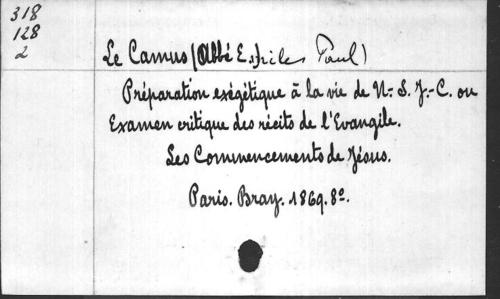 318
128
2
Le Camus (Abbé E. Paul)
Préparation exégétique à la vie de N.-S. J.-C. ou
Examen critique des récits de l'Evangile.
Les Commencements de Jésus.
Paris. Bray. 1869. 8º.